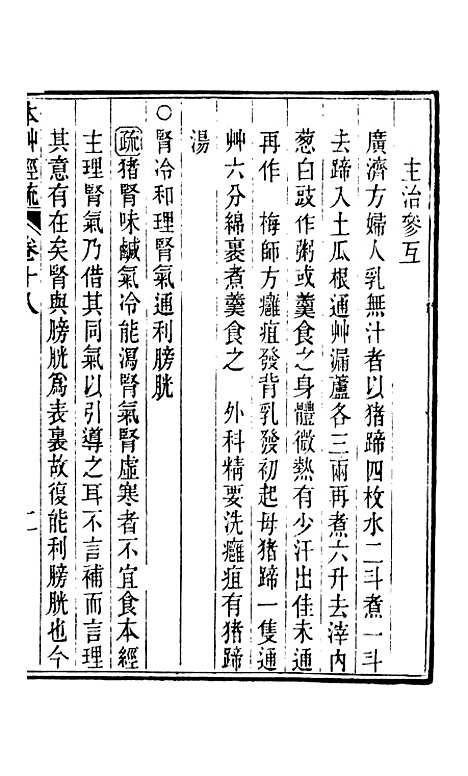 主治參互
廣濟方婦人乳無汁者以猪蹄四枚水二斗煮一斗
去蹄入土瓜根通艸漏蘆各三兩再煮六升去滓內
葱白豉作粥或羹食之身體微熱有少汗出佳未通
再作　梅師方癰疽發背乳發初起母猪蹄一隻通
艸六分綿裹煮羹食之　外科精要洗癰疽有猪蹄
湯
○腎冷和理腎氣通利膀胱
疏猪腎味鹹氣冷能瀉腎氣腎虛寒者不宜食本經
主理腎氣乃借其同氣以引導之耳不言補而言理
其意有在矣腎與膀胱爲表裏故復能利膀胱也今
本艸經疏　卷十八　二